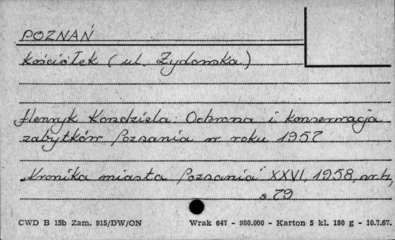 POZNAŃ
Kościółek (ul. Żydowska)
Henryk Kondziela: Ochrona i konserwacja
zabytków Poznania w roku 1957
„Kronika miasta Poznania" XXVI, 1958, nr 4,
s. 79
CWD B 15b Zam. 915/DW/ON Wrak 647 - 980.000 - Karton 5 kl. 180 g - 10.7.67.